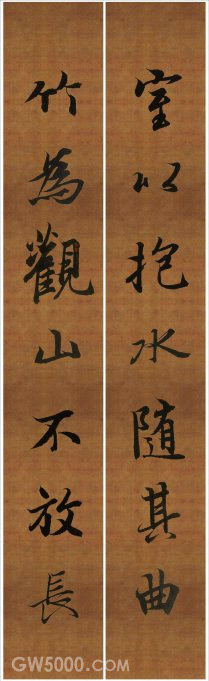 室以抱水随其曲
竹為觀山不放長
GW5000.com